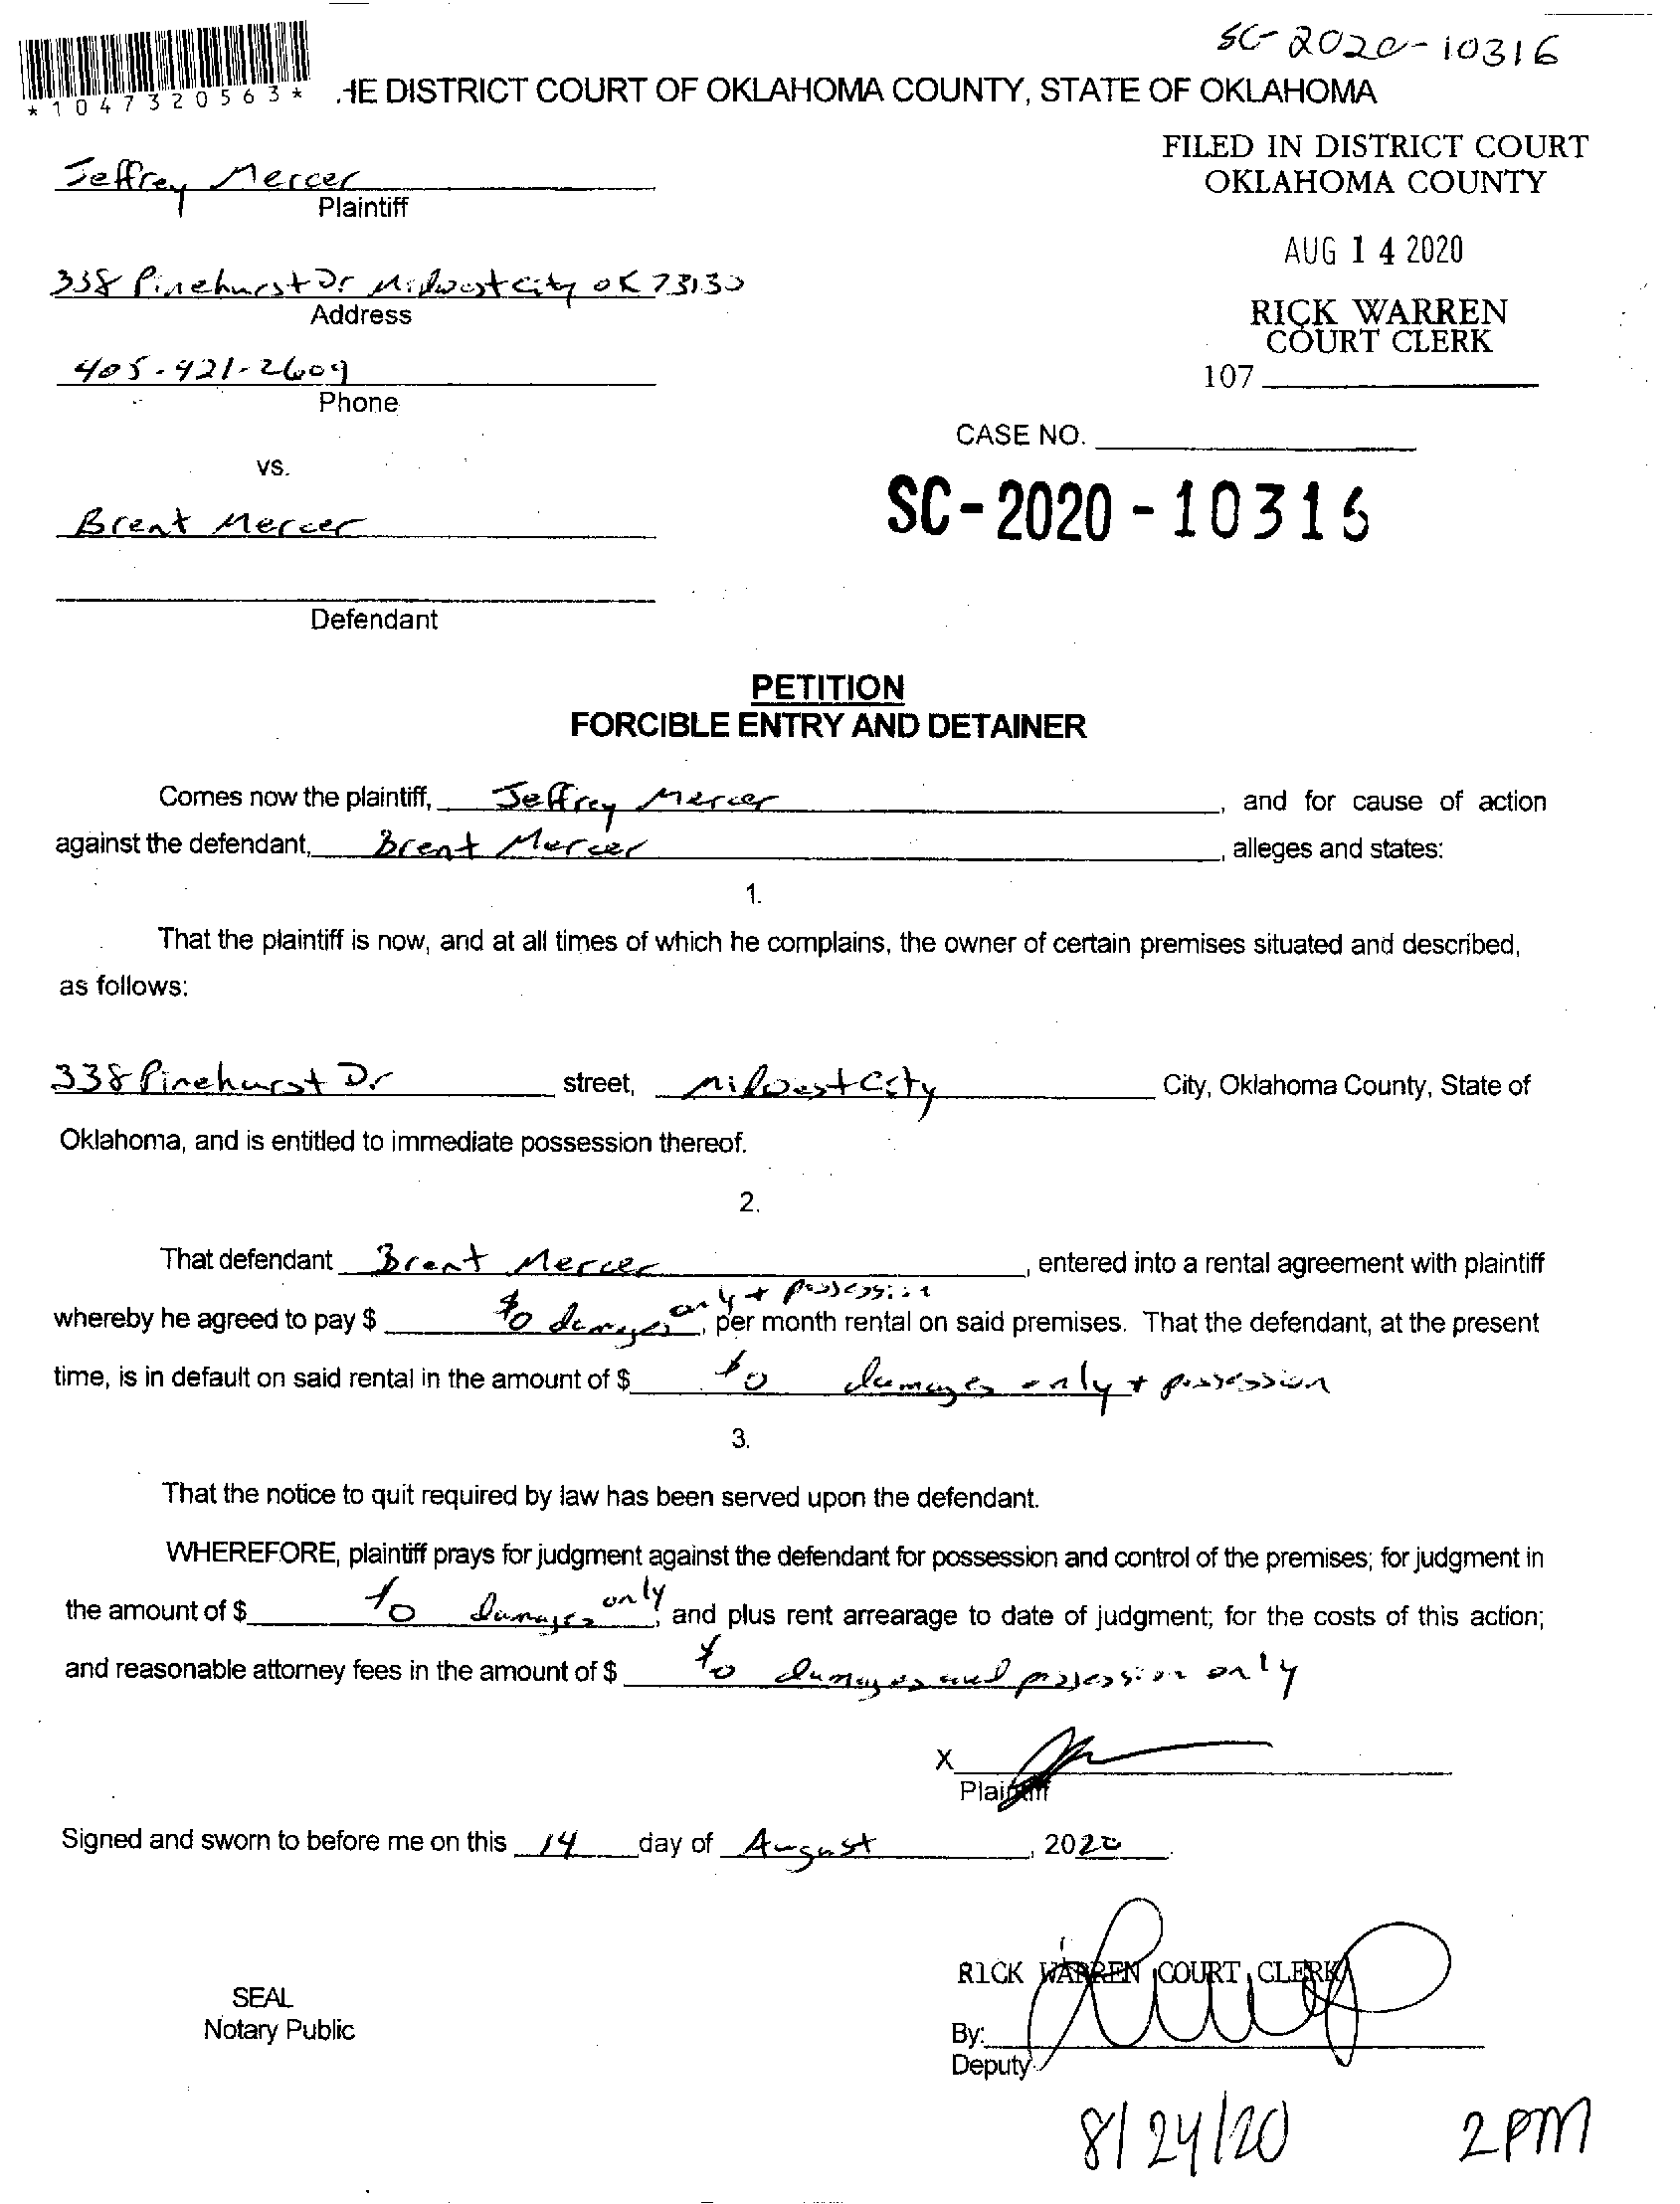 SC-2020-10316
*1047320563*
HE DISTRICT COURT OF OKLAHOMA COUNTY, STATE OF OKLAHOMA
FILED IN DISTRICT COURT
OKLAHOMA COUNTY
Jeffrey Mercer
Plaintiff
AUG 14 2020
338 Pinehurst Dr Midwest City OK 73130
Address
RICK WARREN
COURT CLERK
405-421-2609
107
Phone
CASE NO.
vs.
SC-2020-10316
Brent Mercer
Defendant
PETITION
FORCIBLE ENTRY AND DETAINER
Comes now the plaintiff, Jeffrey Mercer, and for cause of action
against the defendant, Brent Mercer, alleges and states:
1.
That the plaintiff is now, and at all times of which he complains, the owner of certain premises situated and described,
as follows:
338 Pinehurst Dr street, Midwest City City, Oklahoma County, State of
Oklahoma, and is entitled to immediate possession thereof.
2.
That defendant Brent Mercer, entered into a rental agreement with plaintiff
whereby he agreed to pay $ $0 damages only + possession, per month rental on said premises. That the defendant, at the present
time, is in default on said rental in the amount of $ $0 damages only + possession
3.
That the notice to quit required by law has been served upon the defendant.
WHEREFORE, plaintiff prays for judgment against the defendant for possession and control of the premises; for judgment in
the amount of $ $0 damages only; and plus rent arrearage to date of judgment; for the costs of this action;
and reasonable attorney fees in the amount of $ $0 damages and possession only
X
Plaintiff
Signed and sworn to before me on this 14 day of August, 2020.
RICK WARREN COURT CLERK
SEAL
Notary Public
By:
Deputy
8/24/20 2PM